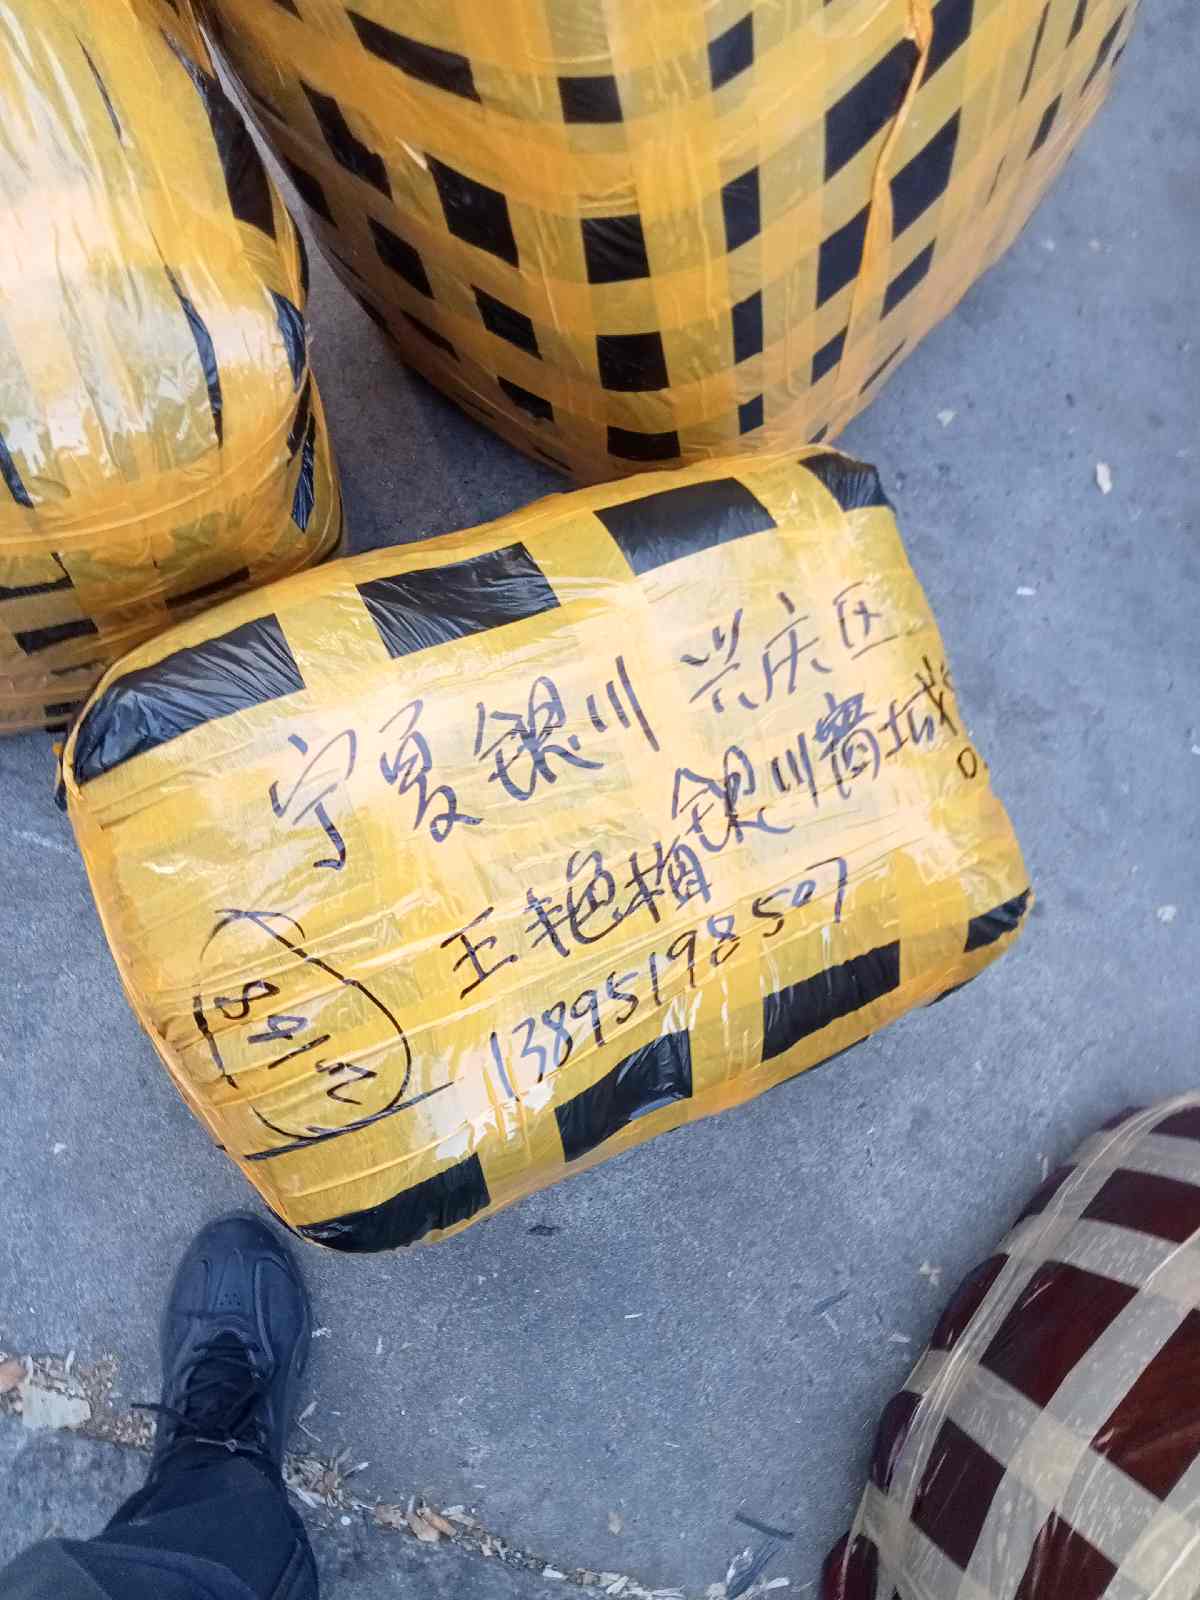 宁夏银川 兴庆区
王艳梅 银川商城
13895198507